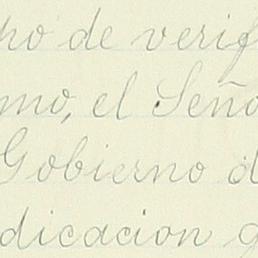 ho de verif
mo, el Seño
Gobierno d
dicacion g